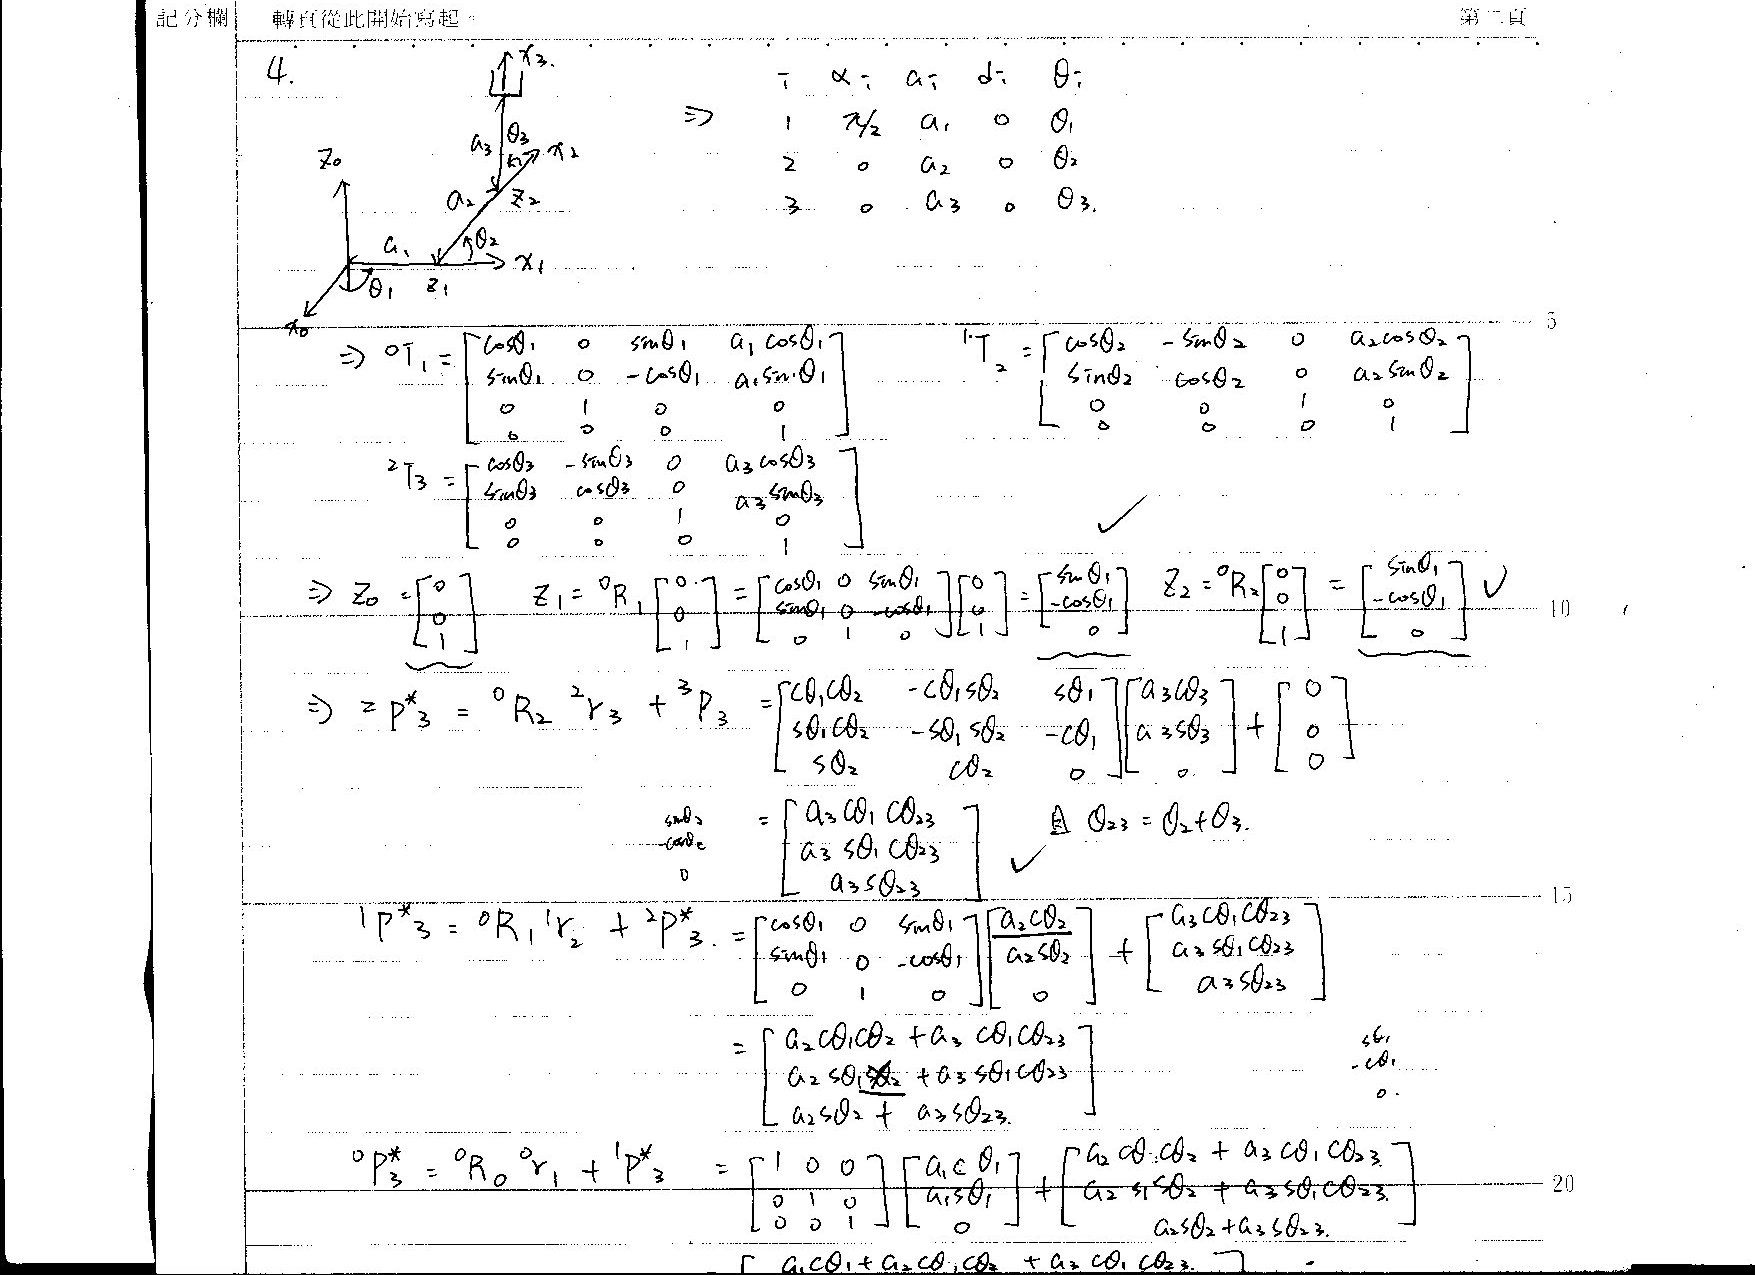 記分欄 轉頁從此開始寫起。 第二頁
4.
x₃.
a₃ θ₃ x₂
z₀ a₂ z₂
a₁ θ₂ x₁
θ₁ z₁
x₀
i αᵢ aᵢ dᵢ θᵢ
⇒ 1 π/2 a₁ 0 θ₁
2 0 a₂ 0 θ₂
3 0 a₃ 0 θ₃.
5
⇒ ⁰T₁ = [cosθ₁ 0 sinθ₁ a₁cosθ₁; sinθ₁ 0 -cosθ₁ a₁sinθ₁; 0 1 0 0; 0 0 0 1] ¹T₂ = [cosθ₂ -sinθ₂ 0 a₂cosθ₂; sinθ₂ cosθ₂ 0 a₂sinθ₂; 0 0 1 0; 0 0 0 1]
²T₃ = [cosθ₃ -sinθ₃ 0 a₃cosθ₃; sinθ₃ cosθ₃ 0 a₃sinθ₃; 0 0 1 0; 0 0 0 1] ✓
⇒ Z₀ = [0; 0; 1] Z₁ = ⁰R₁ [0; 0; 1] = [cosθ₁ 0 sinθ₁; sinθ₁ 0 -cosθ₁; 0 1 0] [0; 0; 1] = [sinθ₁; -cosθ₁; 0] Z₂ = ⁰R₂ [0; 0; 1] = [sinθ₁; -cosθ₁; 0] ✓ 10
⇒ ²P*₃ = ⁰R₂ ²r₃ + ³P₃ = [cθ₁cθ₂ -cθ₁sθ₂ sθ₁; sθ₁cθ₂ -sθ₁sθ₂ -cθ₁; sθ₂ cθ₂ 0] [a₃cθ₃; a₃sθ₃; 0] + [0; 0; 0]
sinθ₂ -cosθ₂ 0 = [a₃cθ₁cθ₂₃; a₃sθ₁cθ₂₃; a₃sθ₂₃] ✓ 且 θ₂₃ = θ₂+θ₃.
15
¹P*₃ = ⁰R₁ ¹r₂ + ²P*₃. = [cosθ₁ 0 sinθ₁; sinθ₁ 0 -cosθ₁; 0 1 0] [a₂cθ₂; a₂sθ₂; 0] + [a₃cθ₁cθ₂₃; a₃sθ₁cθ₂₃; a₃sθ₂₃]
= [a₂cθ₁cθ₂ + a₃cθ₁cθ₂₃; a₂sθ₁sθ₂ + a₃sθ₁cθ₂₃; a₂sθ₂ + a₃sθ₂₃.] sθ₁ -cθ₁ 0.
⁰P*₃ = ⁰R₀ ⁰r₁ + ¹P*₃ = [1 0 0; 0 1 0; 0 0 1] [a₁cθ₁; a₁sθ₁; 0] + [a₂cθ₁cθ₂ + a₃cθ₁cθ₂₃.; a₂s₁sθ₂ + a₃sθ₁cθ₂₃.; a₂sθ₂+a₃sθ₂₃.] 20
[a₁cθ₁+a₂cθ₁cθ₂ + a₃cθ₁cθ₂₃.